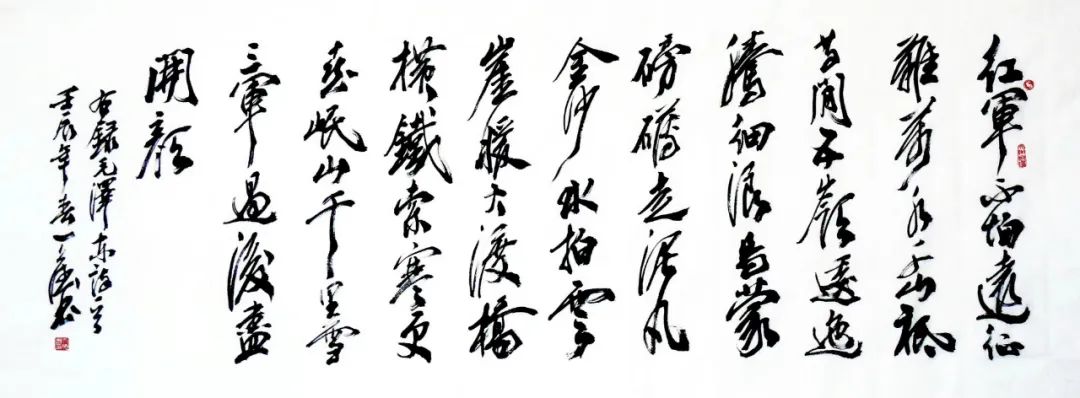 紅軍不怕遠征
難萬水千山祇
等閒五嶺逶迤
騰細浪烏蒙
磅礴走泥丸
金沙水拍雲
崖暖大渡橋
横鐵索寒更
喜岷山千里雪
三軍過後盡
開顏
右錄毛澤東詩
壬辰年春一